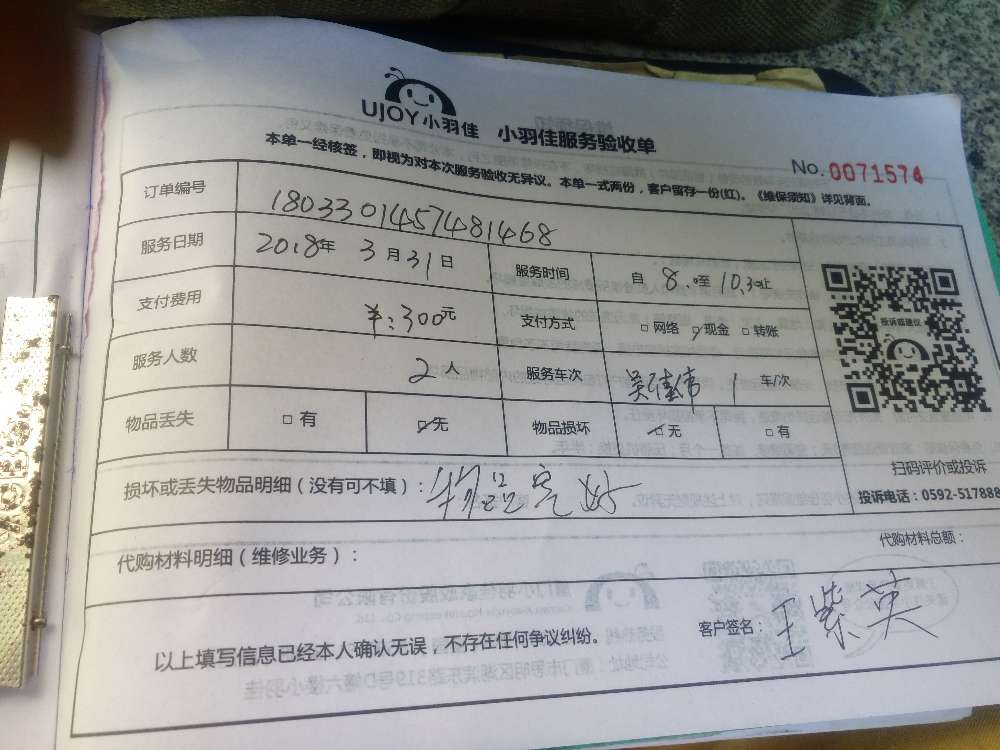 UJOY小羽佳 小羽佳服务验收单
本单一经核签，即视为对本次服务验收无异议。本单一式两份，客户留存一份(红)。《维保须知》详见背面。
No. 0071574
订单编号 1803301457481468
服务日期 2018年 3月 31日 服务时间 自 8.0至 10.30止
支付费用 ￥:300元 支付方式 □网络 □现金 □转账
服务人数 2人 服务车次 1 车/次
物品丢失 □有 □无 物品损坏 □无 □有
投诉或建议
扫码评价或投诉
投诉电话：0592-517888
损坏或丢失物品明细（没有可不填）：物品完好
代购材料明细（维修业务）：
代购材料总额：
以上填写信息已经本人确认无误，不存在任何争议纠纷。
客户签名：王紫英